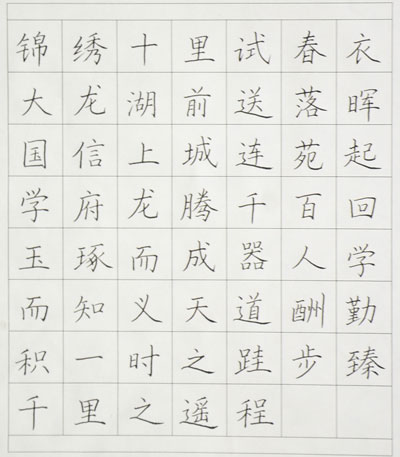 锦绣十里试春衣
大龙湖前送落晖
国信上城连苑起
学府龙腾千百回
玉琢而成器人学
而知义天道酬勤
积一时之跬步臻
千里之遥程